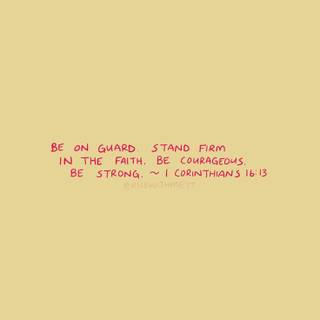 BE ON GUARD. STAND FIRM
IN THE FAITH. BE COURAGEOUS.
BE STRONG. ~ 1 CORINTHIANS 16:13